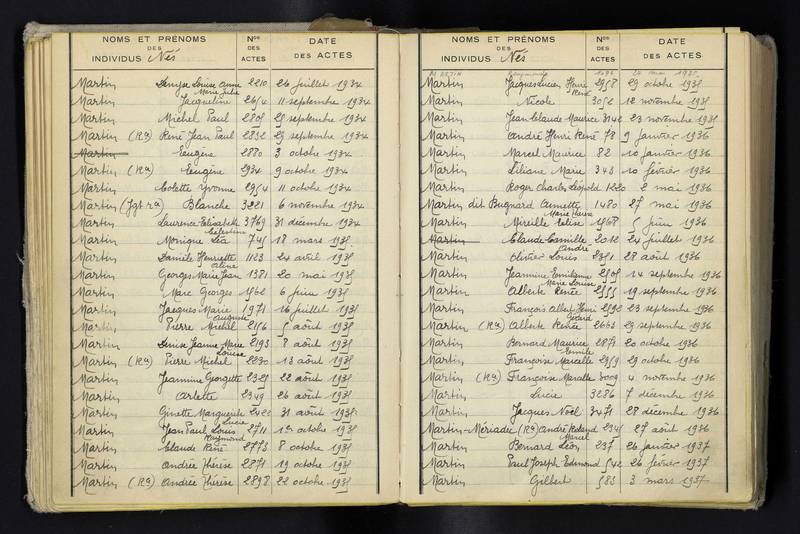 NOMS ET PRÉNOMS
DES
INDIVIDUS Nés
Nos
DES
ACTES
DATE
DES ACTES
Martin Denyse Louise Anne 2210 26 juillet 1934
Marie Julie
Martin Jacqueline 2654 11 septembre 1934
Martin Michel Paul 2805 25 septembre 1934
Martin (Ra) René Jean Paul 2832 29 septembre 1934
Martin Eugène 2880 3 octobre 1934
Martin (Ra) Eugène 2934 9 octobre 1934
Martin Colette Yvonne 2954 11 octobre 1934
Martin (Jgt ra) Blanche 3221 6 novembre 1934
Martin Laurence Elisabeth 3769 31 décembre 1934
Célestine
Martin Monique Léa 745 18 mars 1935
Martin Danièle Henriette 1123 24 avril 1935
Aline
Martin Georges Marie Jean 1381 20 mai 1935
Martin Marc Georges 1562 6 juin 1935
Martin Jacques Marie 1971 16 juillet 1935
Auguste
Martin Pierre Michel 2156 5 août 1935
Martin Denise Jeanne Marie 2193 8 août 1935
Louise
Martin (Ra) Pierre Michel 2230 13 août 1935
Martin Jeannine Georgette 2325 22 août 1935
Martin Arlette 2349 26 août 1935
Martin Ginette Marguerite 2422 31 août 1935
Lucie
Martin Jean Paul Louis 2711 1er octobre 1935
Raymond
Martin Claude René 2773 8 octobre 1935
Martin Andrée Thérèse 2871 19 octobre 1935
Martin (Ra) Andrée Thérèse 2898 22 octobre 1935
NOMS ET PRÉNOMS
DES
INDIVIDUS Nés
Nos
DES
ACTES
DATE
DES ACTES
MARTIN Raymonde 1935
Martin Jacques Lucien Henri 2958 29 octobre 1935
René
Martin Nicole 3052 12 novembre 1935
Martin Jean Claude Maurice 3142 23 novembre 1935
Martin André Henri René 78 9 janvier 1936
Martin Marcel Maurice 82 10 janvier 1936
Martin Liliane Marie 343 10 février 1936
Martin Roger Charles Léopold 1220 2 mai 1936
Martin dit Bugnard Annette 1480 27 mai 1936
Marie Louise
Martin Mireille Elise 1568 5 juin 1936
Martin Claude Camille 2012 24 juillet 1936
André
Martin Olivier Louis 2331 28 août 1936
Martin Jeannine Emilienne 2505 14 septembre 1936
Marie Louise
Martin Alberte Renée 2555 19 septembre 1936
Martin François Albert Henri 2592 23 septembre 1936
Gérard
Martin (Ra) Alberte Renée 2663 29 septembre 1936
Martin Bernard Maurice 2871 20 octobre 1936
Emile
Martin Françoise Marcelle 2959 29 octobre 1936
Martin (Ra) Françoise Marcelle 3009 4 novembre 1936
Martin Lucie 3286 7 décembre 1936
Martin Jacques Noël 3471 28 décembre 1936
Martin-Mériadec (Ra) André Roland 2341 27 août 1936
Marcel
Martin Bernard Léon 237 26 janvier 1937
Martin Paul Joseph Edmond 542 26 février 1937
Martin Gilbert 583 3 mars 1937